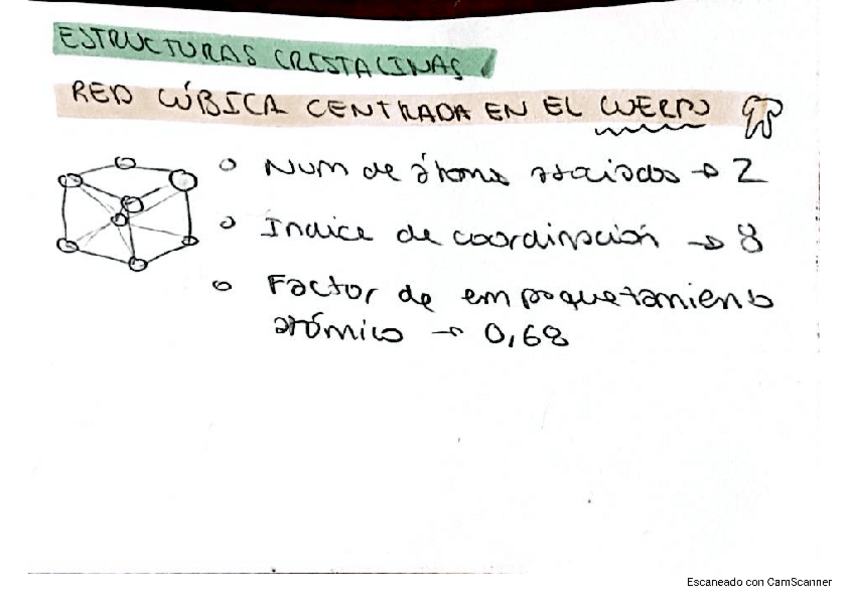 ESTRUCTURAS CRISTALINAS
RED CÚBICA CENTRADA EN EL CUERPO
Num de átomos asociados → 2
Indice de coordinación → 8
Factor de empaquetamiento
atómico → 0,68
Escaneado con CamScanner